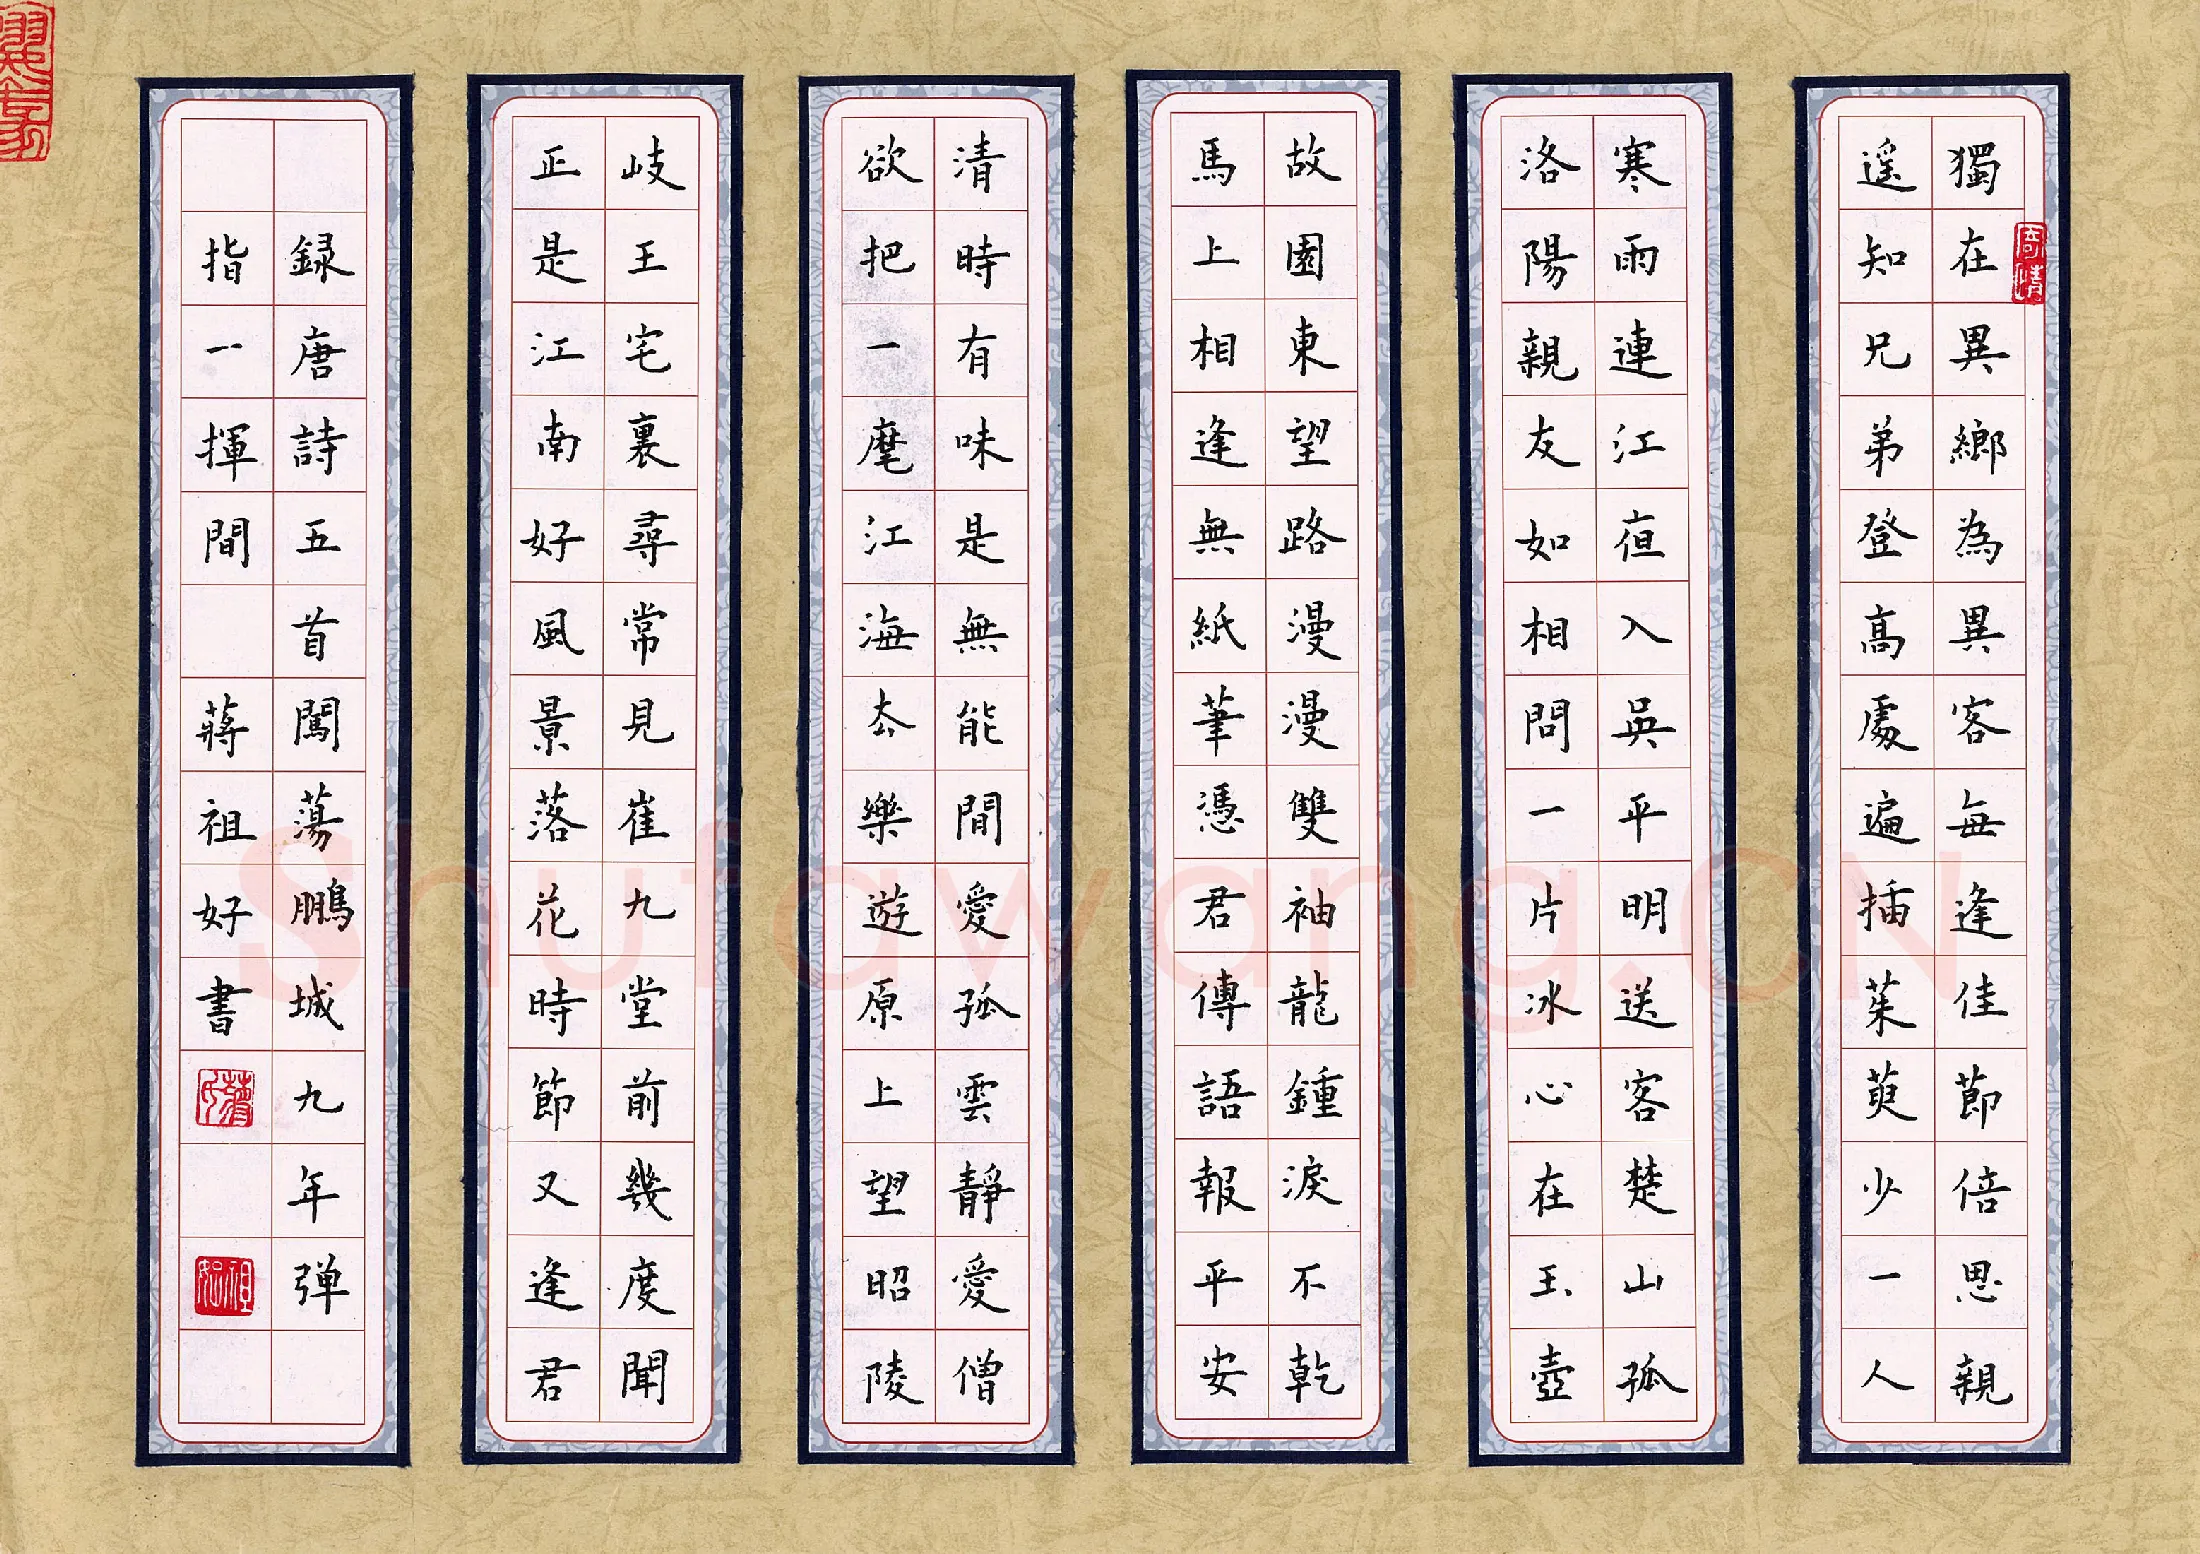 獨在異鄉為異客每逢佳節倍思親
遥知兄弟登高處遍插茱萸少一人
寒雨連江夜入吳平明送客楚山孤
洛陽親友如相問一片冰心在玉壺
故園東望路漫漫雙袖龍鍾淚不乾
馬上相逢無紙筆憑君傳語報平安
清時有味是無能間愛孤雲靜愛僧
欲把一麾江海去樂遊原上望昭陵
岐王宅裏尋常見崔九堂前幾度聞
正是江南好風景落花時節又逢君
録唐詩五首闖蕩鵬城九年弹
指一揮間 蔣祖好書
蔣氏
祖好
Shufawang.CN